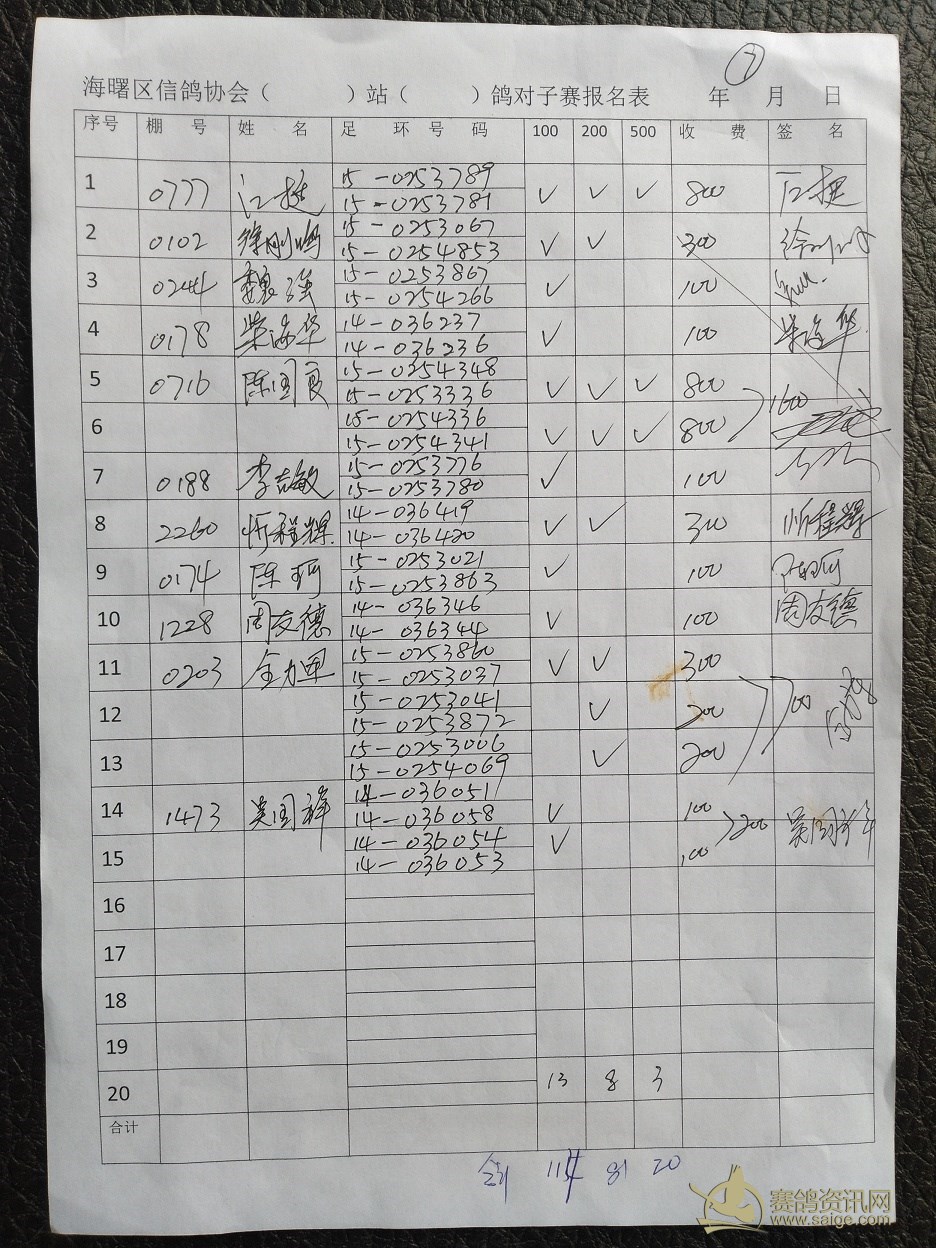 7
海曙区信鸽协会（ ）站（ ）鸽对子赛报名表 年 月 日
序号 棚 号 姓 名 足 环 号 码 100 200 500 收 费 签 名
1 0777 江挺 15-0253789 ✓ ✓ ✓ 800 江挺
15-0253781
2 0102 徐刚鸣 15-0253067 ✓ ✓ 300
15-0254853
3 0244 魏强 15-0253867 ✓ 100
15-0254266
4 0178 柴海华 14-036237 ✓ 100
14-036236
5 0716 陈国良 15-0254348 ✓ ✓ ✓ 800 1600
15-0253336
6 15-0254336 ✓ ✓ ✓ 800
15-0254341
7 0188 李志敏 15-0253776 ✓ 100
15-0253780
8 2260 忻程辉 14-036419 ✓ ✓ 300 忻程辉
14-036420
9 0174 陈珂 15-0253021 ✓ 100 陈珂
15-0253863
10 1228 周友德 14-036346 ✓ 100 周友德
14-036344
11 0203 全力军 15-0253860 ✓ ✓ 300
15-0253037
12 15-0253041 ✓ 200 700
15-0253872
13 15-0253006 ✓ 200
15-0254069
14 1473 吴国祥 14-036051 ✓ 100 200 吴国祥
14-036058
15 14-036054 ✓ 100
14-036053
16
17
18
19
20 13 8 3
合计
114 81 20
赛鸽资讯网
www.saige.com